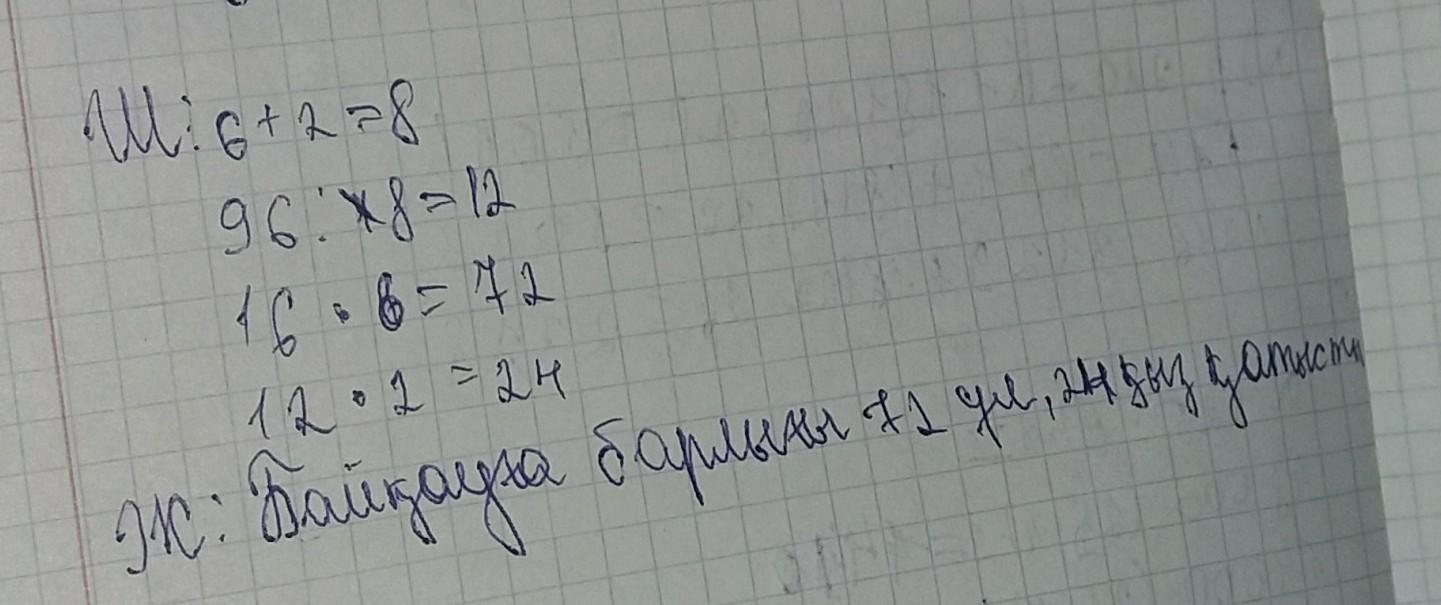 Ш: 6+2=8
96:8=12
16·6=72
12·2=24
Ж: Байқауға барлығы 72 ұл, 24 қыз қатысты